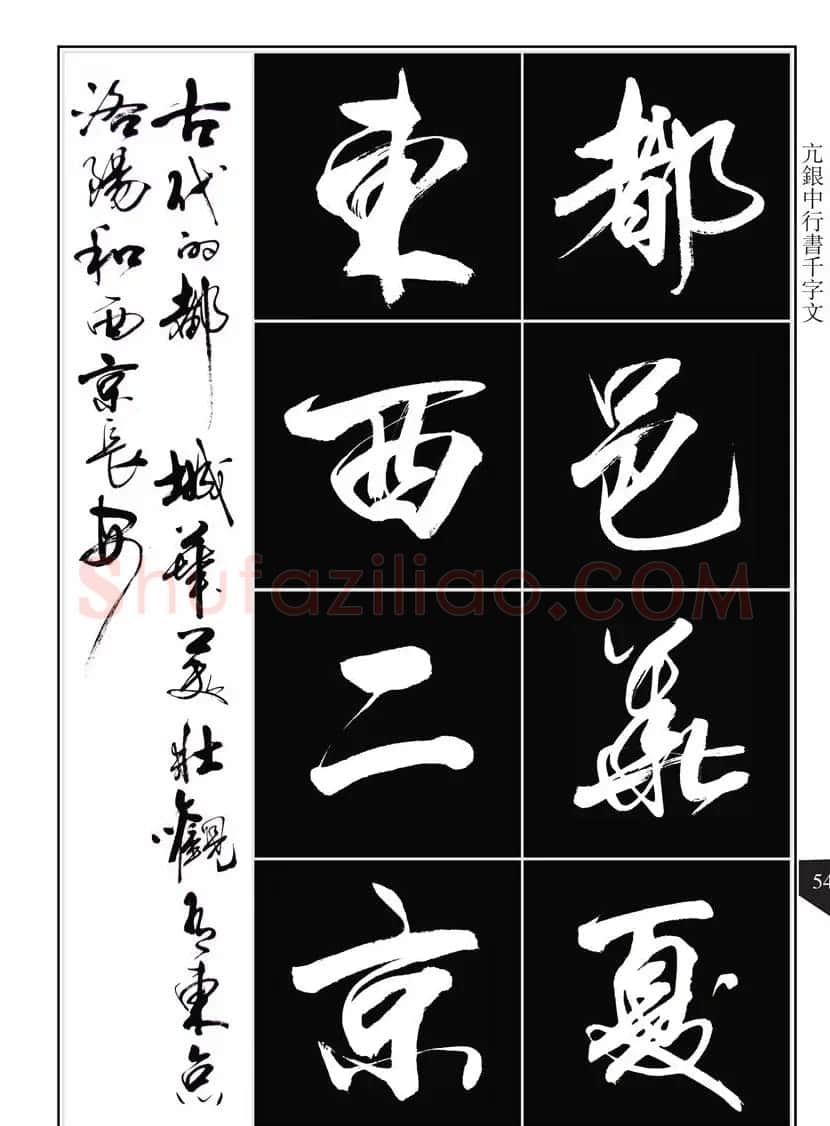 亢銀中行書千字文
都邑華夏
東西二京
古代的都城華美壯觀有東京
洛陽和西京長安
54
Shufaziliao.COM